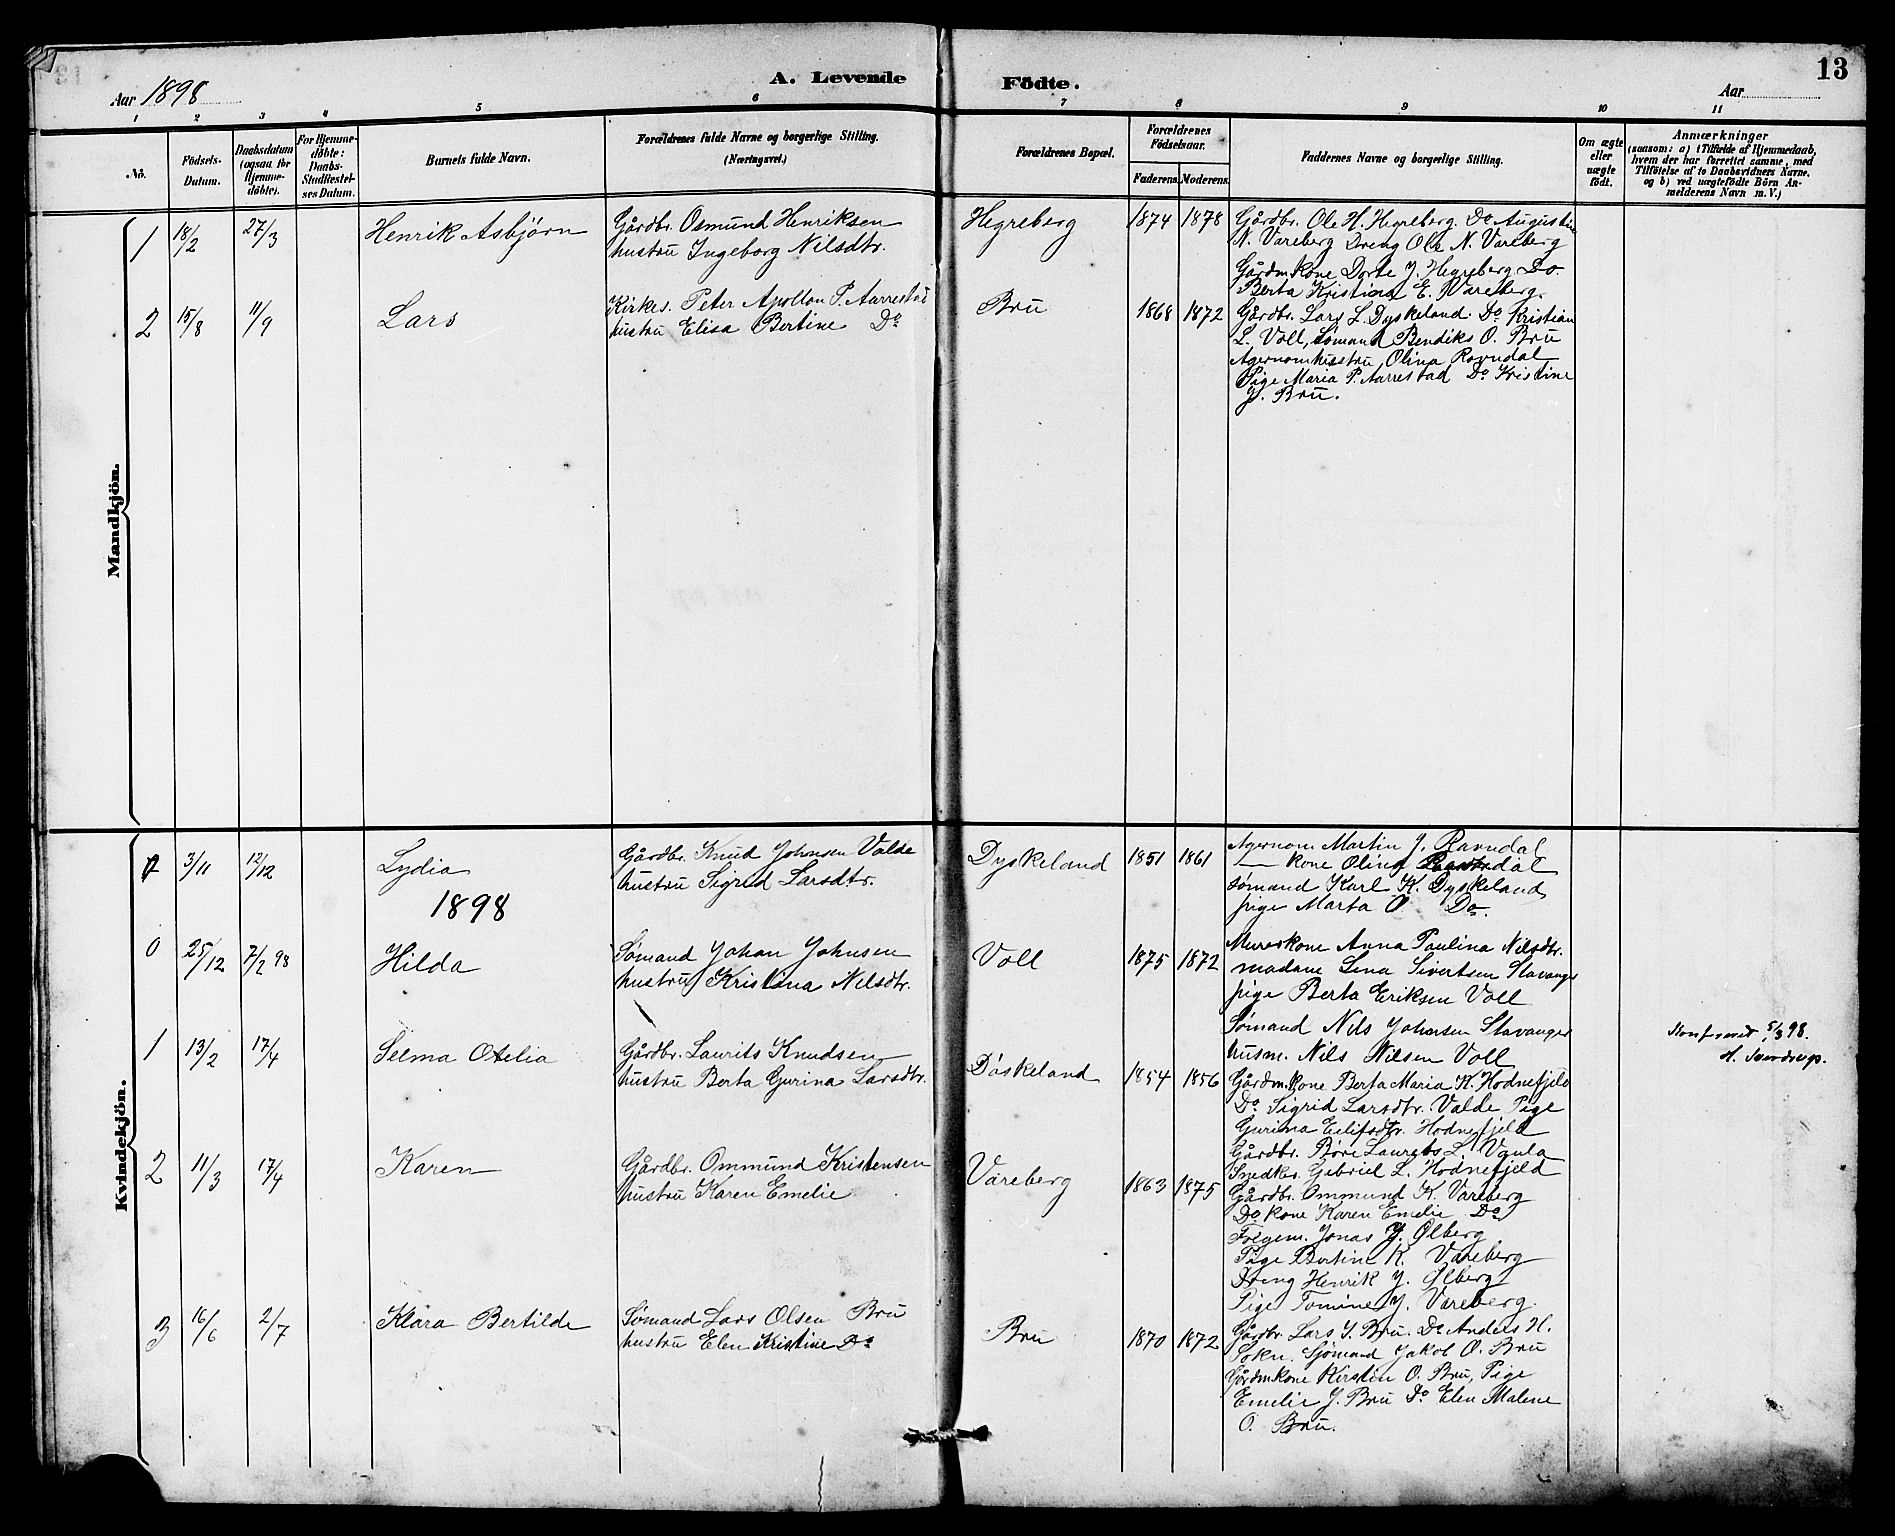 A. Levende Födte.
13
Aar 1898
Aar
1 2 3 4 5 6 7 8 9 10 11
No.
Födsels-
Datum.
Daabsdatum
(ogsaa for
Hjemme-
döbte).
For Hjemme-
döbte:
Daabs-
Stadfæstel-
ses Datum.
Barnets fulde Navn.
Forældrenes fulde Navne og borgerlige Stilling.
(Næringsvei.)
Forældrenes Bopæl.
Forældrenes
Födselsaar.
Faderens. Moderens.
Faddernes Navne og borgerlige Stilling.
Om ægte
eller
uægte
født.
Anmærkninger
(saasom: a) i Tilfælde af Hjemmedaab,
hvem der har forrettet samme, med
Tilføielse af to Daabsvidners Navne,
og b) ved uægtefödte Börn An-
melderens Navn m. V.)
Mandkjön.
1 18/2 27/3 Henrik Asbjörn
Gårdbr. Osmund Henriksen
hustru Ingeborg Nilsdtr.
Hegreberg 1874 1878
Gårdbr. Ole H. Hegreberg Do Augustin
N. Vareberg Dreng Ole N. Vareberg
Gårdmkone Dorte J. Hegreberg Do
Berta Kristina E. Vareberg.
2 15/8 11/9 Lars
Kirkes. Peter Apollon P. Aarrestad
hustru Elisa Bertine Do
Bru 1868 1872
Gårdbr. Lars L. Dyskeland Do Kristian
L. Voll, Sømand Bendiks O. Bru
Agernomhustru Olina Ravndal
Pige Maria P. Aarrestad Do Kristine
J. Bru.
Kvindekjön.
3/11 12/12 Lydia
Gårdbr. Knud Johnsen Valde
hustru Sigrid Larsdtr.
Dyskeland 1851 1861
Agernom Martin J. Ravndal
— kone Olina Ravndal
sømand Karl K. Dyskeland
pige Marta O Do.
1898
0 25/12 7/2 98 Hilda
Sømand Johan Johnsen
hustru Kristina Nilsdtr.
Voll 1875 1872
Murerkone Anna Paulina Nilsdtr.
madame Lena Sivertsen Stavanger
pige Berta Eriksen Voll
Sømand Nils Johnsen Stavanger
husm. Nils Nilsen Voll
1 13/2 17/4 Selma Otelia
Gårdbr. Laurits Knudsen
hustru Berta Gurina Larsdtr.
Döskeland 1854 1856
Gårdmkone Berta Maria K. Hodnefjeld
Do Sigrid Larsdtr. Valde Pige
Gurina Eilifsdtr. Hodnefjeld
Gårdbr. Böre Laurets L. Vgula
Snedker Gabriel L. Hodnefjeld
Konfereret 5/3 98.
H. Sverdrup.
2 11/3 17/4 Karen
Gårdbr. Ommund Kristensen
hustru Karen Emelie
Vareberg 1863 1875
Gårdbr. Ommund K. Vareberg
Do kone Karen Emelie Do
Jonas J. Ølberg
Pige Bertine K. Vareberg
Dreng Henrik J. Ølberg
Pige Tomine J. Vareberg
3 16/6 2/7 Klara Bertilde
Sømand Lars Olsen Bru
hustru Elen Kristine Do
Bru 1870 1872
Gårdbr. Lars S. Bru. Do Anders H.
Sokn. Sjömand Jakob O. Bru
Gårdmkone Kirsten O. Bru, Pige
Emelie J. Bru Do Elen Malene
O. Bru.